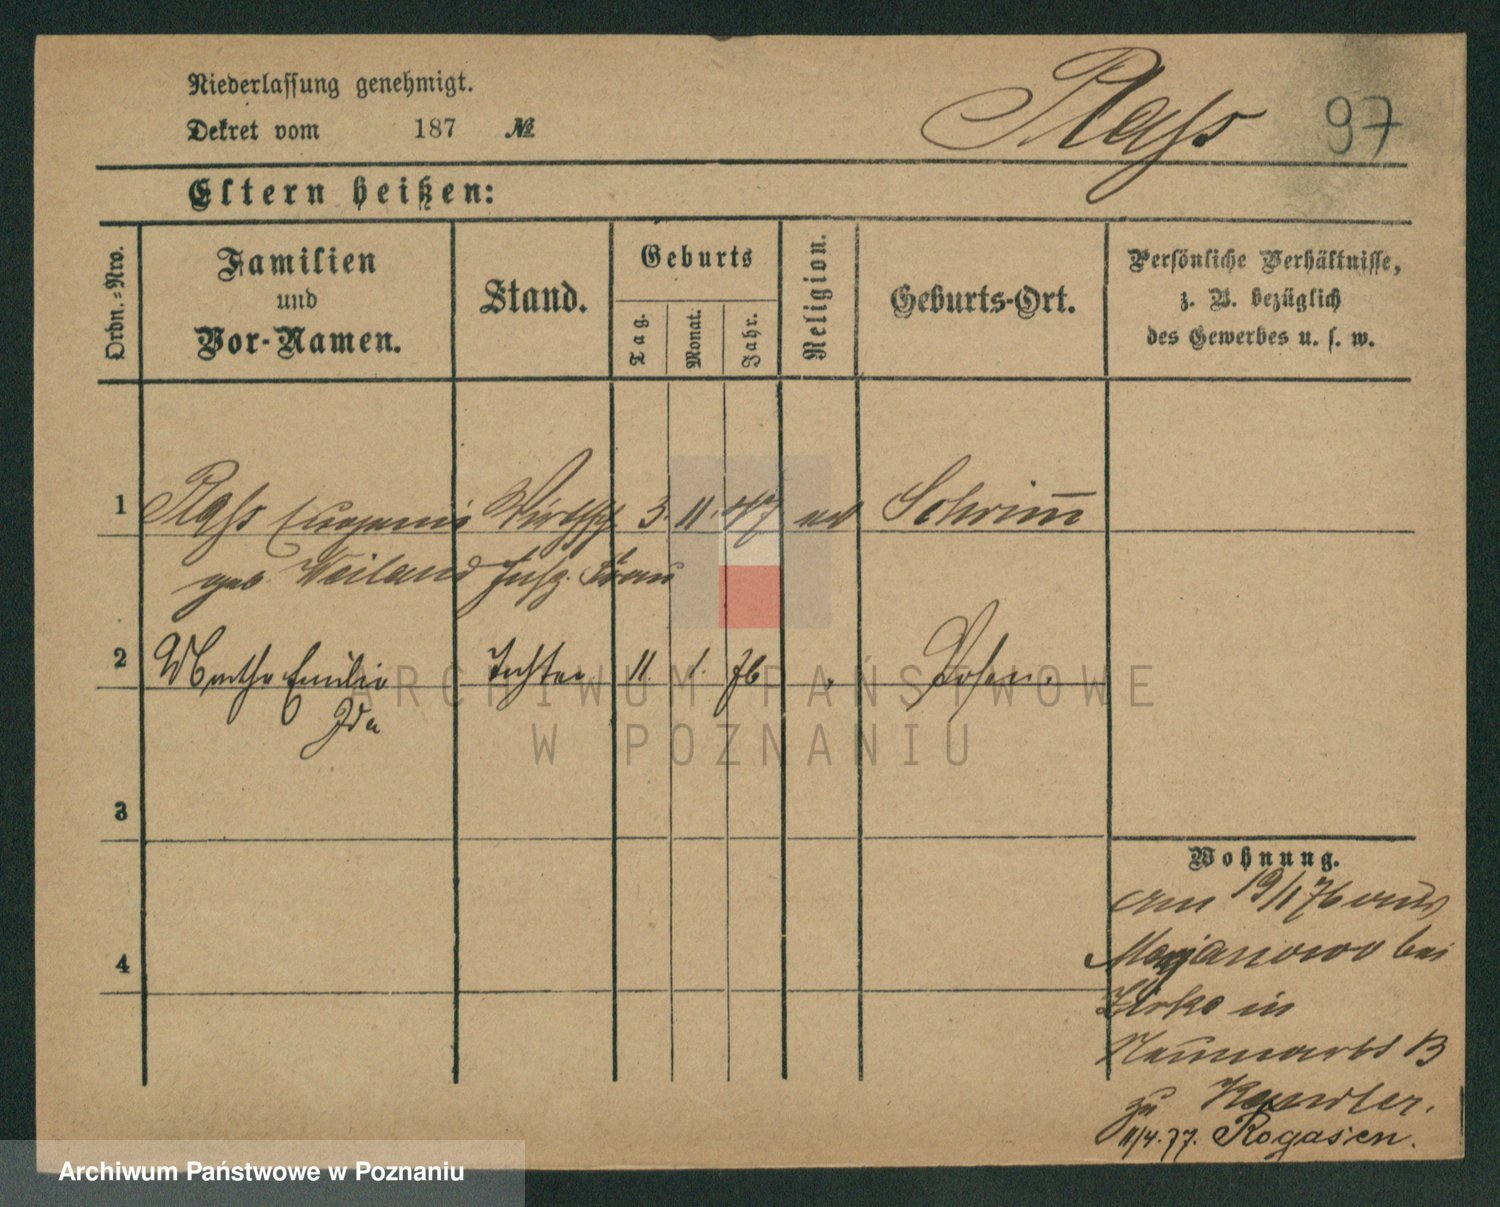 Niederlassung genehmigt.
Dekret vom 187 №
Plass 97
Eltern heißen:
Ordn.-Nro.
Familien
und
Vor-Namen.
Stand.
Geburts
Tag.
Monat.
Jahr.
Religion.
Geburts-Ort.
Persönliche Verhältnisse,
z. B. bezüglich
des Gewerbes u. s. w.
1 Plass Eugenie Wirthsch 3. 11. 47 ev Schrimm
geb. Weiland Insp. Frau
2 Martha Emilie Tochter 11. 1. 76 Posen.
Ida
3
4
Wohnung.
am 19/1 76 aus
Marjanowo bei
Zirke in
Neumarkt B
zu Kandler.
11/4. 77. Rogasen.
ARCHIWUM PAŃSTWOWE
W POZNANIU
Archiwum Państwowe w Poznaniu